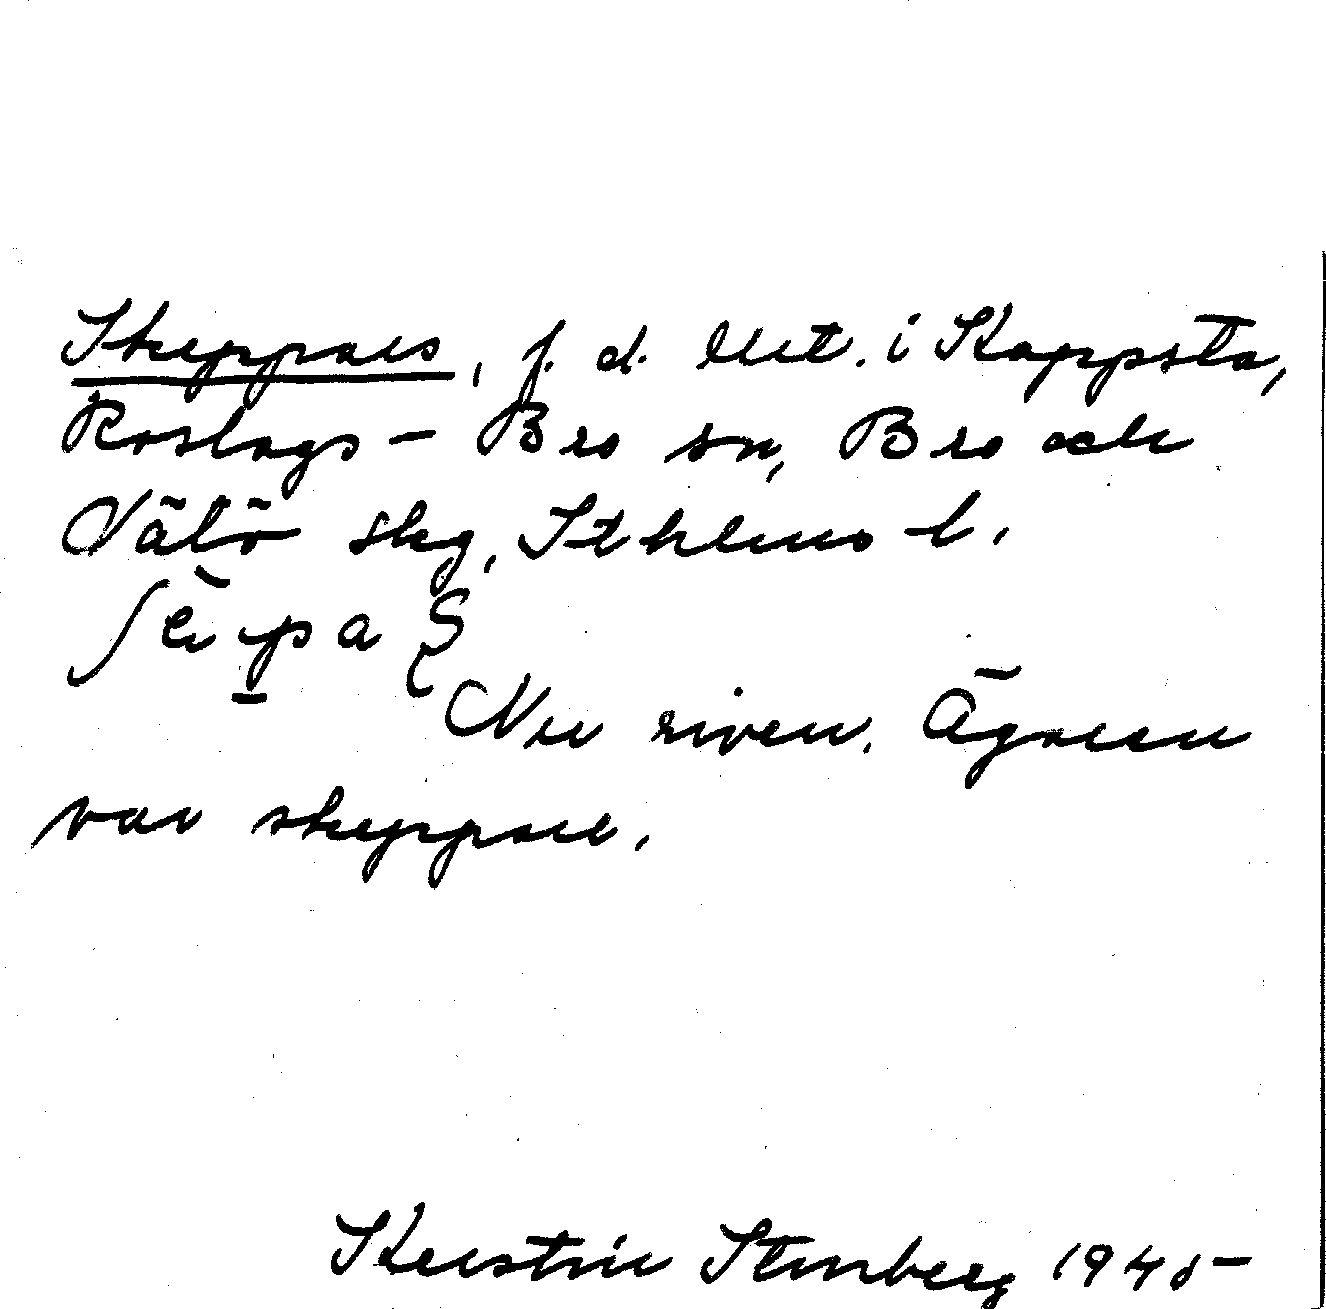 Skeppars, f. d. lht. i Kappsta,
Roslags-Bro sn, Bro och
Vätö skg, Sthlms l.
Nu riven. Ägaren
var skeppare.
Kerstin Stenberg 1945